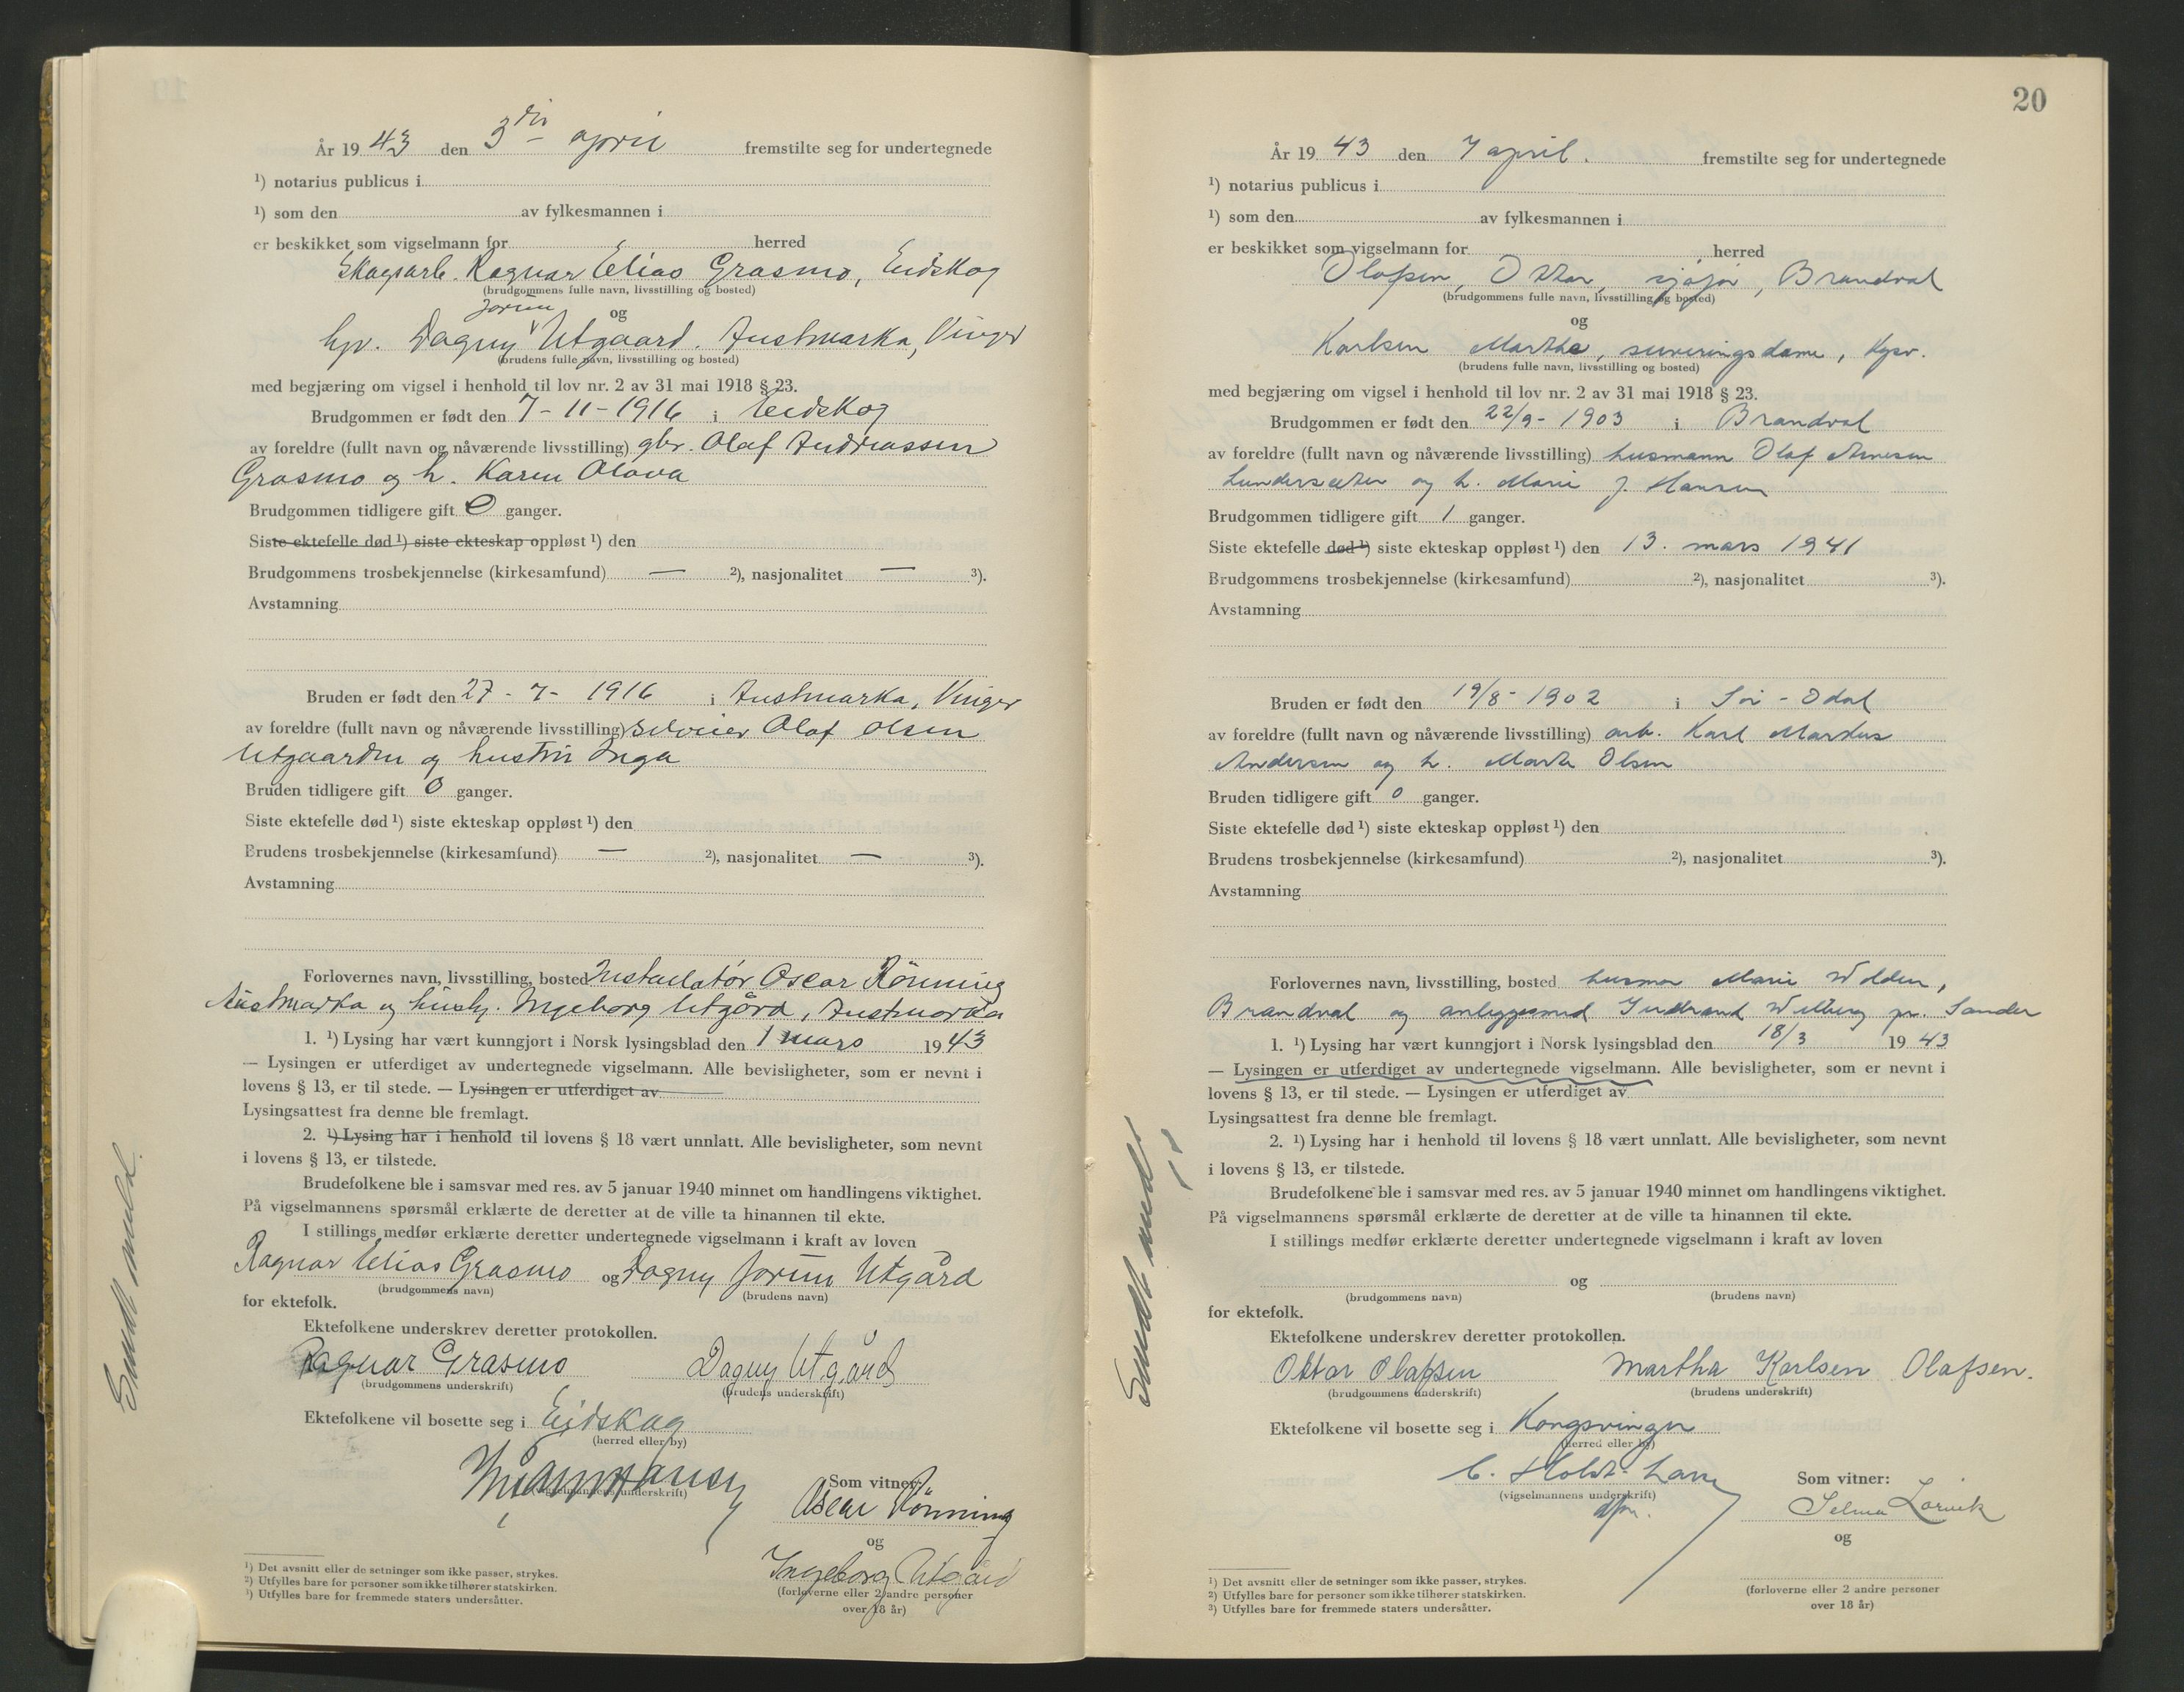 År 1943 den 3die april fremstilte seg for undertegnede
¹) notarius publicus i
¹) som den av fylkesmannen i
er beskikket som vigselmann for herred
Skogsarb. Ragnar Elias Grasmo, Eidskog
(brudgommens fulle navn, livsstilling og bosted)
Jorun
og
hp. Dagny Utgaard. Austmarka, Vinger
(brudens fulle navn, livsstilling og bosted)
med begjæring om vigsel i henhold til lov nr. 2 av 31 mai 1918 § 23.
Brudgommen er født den 7-11-1916 i Eidskog
av foreldre (fullt navn og nåværende livsstilling) gbr. Olaf Andreassen
Grasmo og h. Karen Olava
Brudgommen tidligere gift 0 ganger.
Siste ektefelle død ¹) siste ekteskap oppløst ¹) den
Brudgommens trosbekjennelse (kirkesamfund) — ²), nasjonalitet — ³).
Avstamning
Bruden er født den 27-7-1916 i Austmarka, Vinger
av foreldre (fullt navn og nåværende livsstilling) selveier Olaf Olsen
Utgaarden og hustru Inga
Bruden tidligere gift 0 ganger.
Siste ektefelle død ¹) siste ekteskap oppløst ¹) den
Brudens trosbekjennelse (kirkesamfund) — ²), nasjonalitet — ³).
Avstamning
Forlovernes navn, livsstilling, bosted Installatør Oscar Rönning
Austmarka og hushj. Ingeborg Utgård, Austmarka
1. ¹) Lysing har vært kunngjort i Norsk lysingsblad den 1 mars 1943
— Lysingen er utferdiget av undertegnede vigselmann. Alle bevisligheter, som er nevnt i
lovens § 13, er til stede. — Lysingen er utferdiget av
Lysingsattest fra denne ble fremlagt.
2. ¹) Lysing har i henhold til lovens § 18 vært unnlatt. Alle bevisligheter, som nevnt
i lovens § 13, er tilstede.
Brudefolkene ble i samsvar med res. av 5 januar 1940 minnet om handlingens viktighet.
På vigselmannens spørsmål erklærte de deretter at de ville ta hinannen til ekte.
I stillings medfør erklærte deretter undertegnede vigselmann i kraft av loven
Ragnar Elias Grasmo og Dagny Jorun Utgård
(brudgommens navn) (brudens navn)
for ektefolk.
Ektefolkene underskrev deretter protokollen.
Ragnar Grasmo Dagny Utgård
(brudgommens underskrift) (brudens underskrift)
Ektefolkene vil bosette seg i Eidskog
(herred eller by)
Som vitner:
(vigselmannens underskrift)
Oscar Rönning
og
Ingeborg Utgård
(forloverne eller 2 andre personer
over 18 år)
¹) Det avsnitt eller de setninger som ikke passer, strykes.
²) Utfylles bare for personer som ikke tilhører statskirken.
³) Utfylles bare for fremmede staters undersåtter.
20
År 1943 den 7 april. fremstilte seg for undertegnede
¹) notarius publicus i
¹) som den av fylkesmannen i
er beskikket som vigselmann for herred
Olafsen, Ottar, sjåfør, Brandval
(brudgommens fulle navn, livsstilling og bosted)
og
Karlsen Martha, serveringsdame, Kgsv.
(brudens fulle navn, livsstilling og bosted)
med begjæring om vigsel i henhold til lov nr. 2 av 31 mai 1918 § 23.
Brudgommen er født den 22/9-1903 i Brandval
av foreldre (fullt navn og nåværende livsstilling) husmann Olaf Arnesen
Lundersæter og h. Marie J. Hansen
Brudgommen tidligere gift 1 ganger.
Siste ektefelle død ¹) siste ekteskap oppløst ¹) den 13. mars 1941
Brudgommens trosbekjennelse (kirkesamfund) ²), nasjonalitet ³).
Avstamning
Bruden er født den 19/8-1902 i Sør-Odal
av foreldre (fullt navn og nåværende livsstilling) arb. Karl Markus
Andersen og h. Marte Olsen
Bruden tidligere gift 0 ganger.
Siste ektefelle død ¹) siste ekteskap oppløst ¹) den
Brudens trosbekjennelse (kirkesamfund) ²), nasjonalitet ³).
Avstamning
Forlovernes navn, livsstilling, bosted husmor Marie Wolden,
Brandval og anleggssmed pr. Sander
1. ¹) Lysing har vært kunngjort i Norsk lysingsblad den 18/3 1943
— Lysingen er utferdiget av undertegnede vigselmann. Alle bevisligheter, som er nevnt i
lovens § 13, er til stede. — Lysingen er utferdiget av
Lysingsattest fra denne ble fremlagt.
2. ¹) Lysing har i henhold til lovens § 18 vært unnlatt. Alle bevisligheter, som nevnt
i lovens § 13, er tilstede.
Brudefolkene ble i samsvar med res. av 5 januar 1940 minnet om handlingens viktighet.
På vigselmannens spørsmål erklærte de deretter at de ville ta hinannen til ekte.
I stillings medfør erklærte deretter undertegnede vigselmann i kraft av loven
og
(brudgommens navn) (brudens navn)
for ektefolk.
Ektefolkene underskrev deretter protokollen.
Ottar Olafsen Martha Karlsen Olafsen.
(brudgommens underskrift) (brudens underskrift)
Ektefolkene vil bosette seg i Kongsvinger
(herred eller by)
C. Holst-Larsen Som vitner:
(vigselmannens underskrift)
Selma Lörvik
og
(forloverne eller 2 andre personer
over 18 år)
¹) Det avsnitt eller de setninger som ikke passer, strykes.
²) Utfylles bare for personer som ikke tilhører statskirken.
³) Utfylles bare for fremmede staters undersåtter.